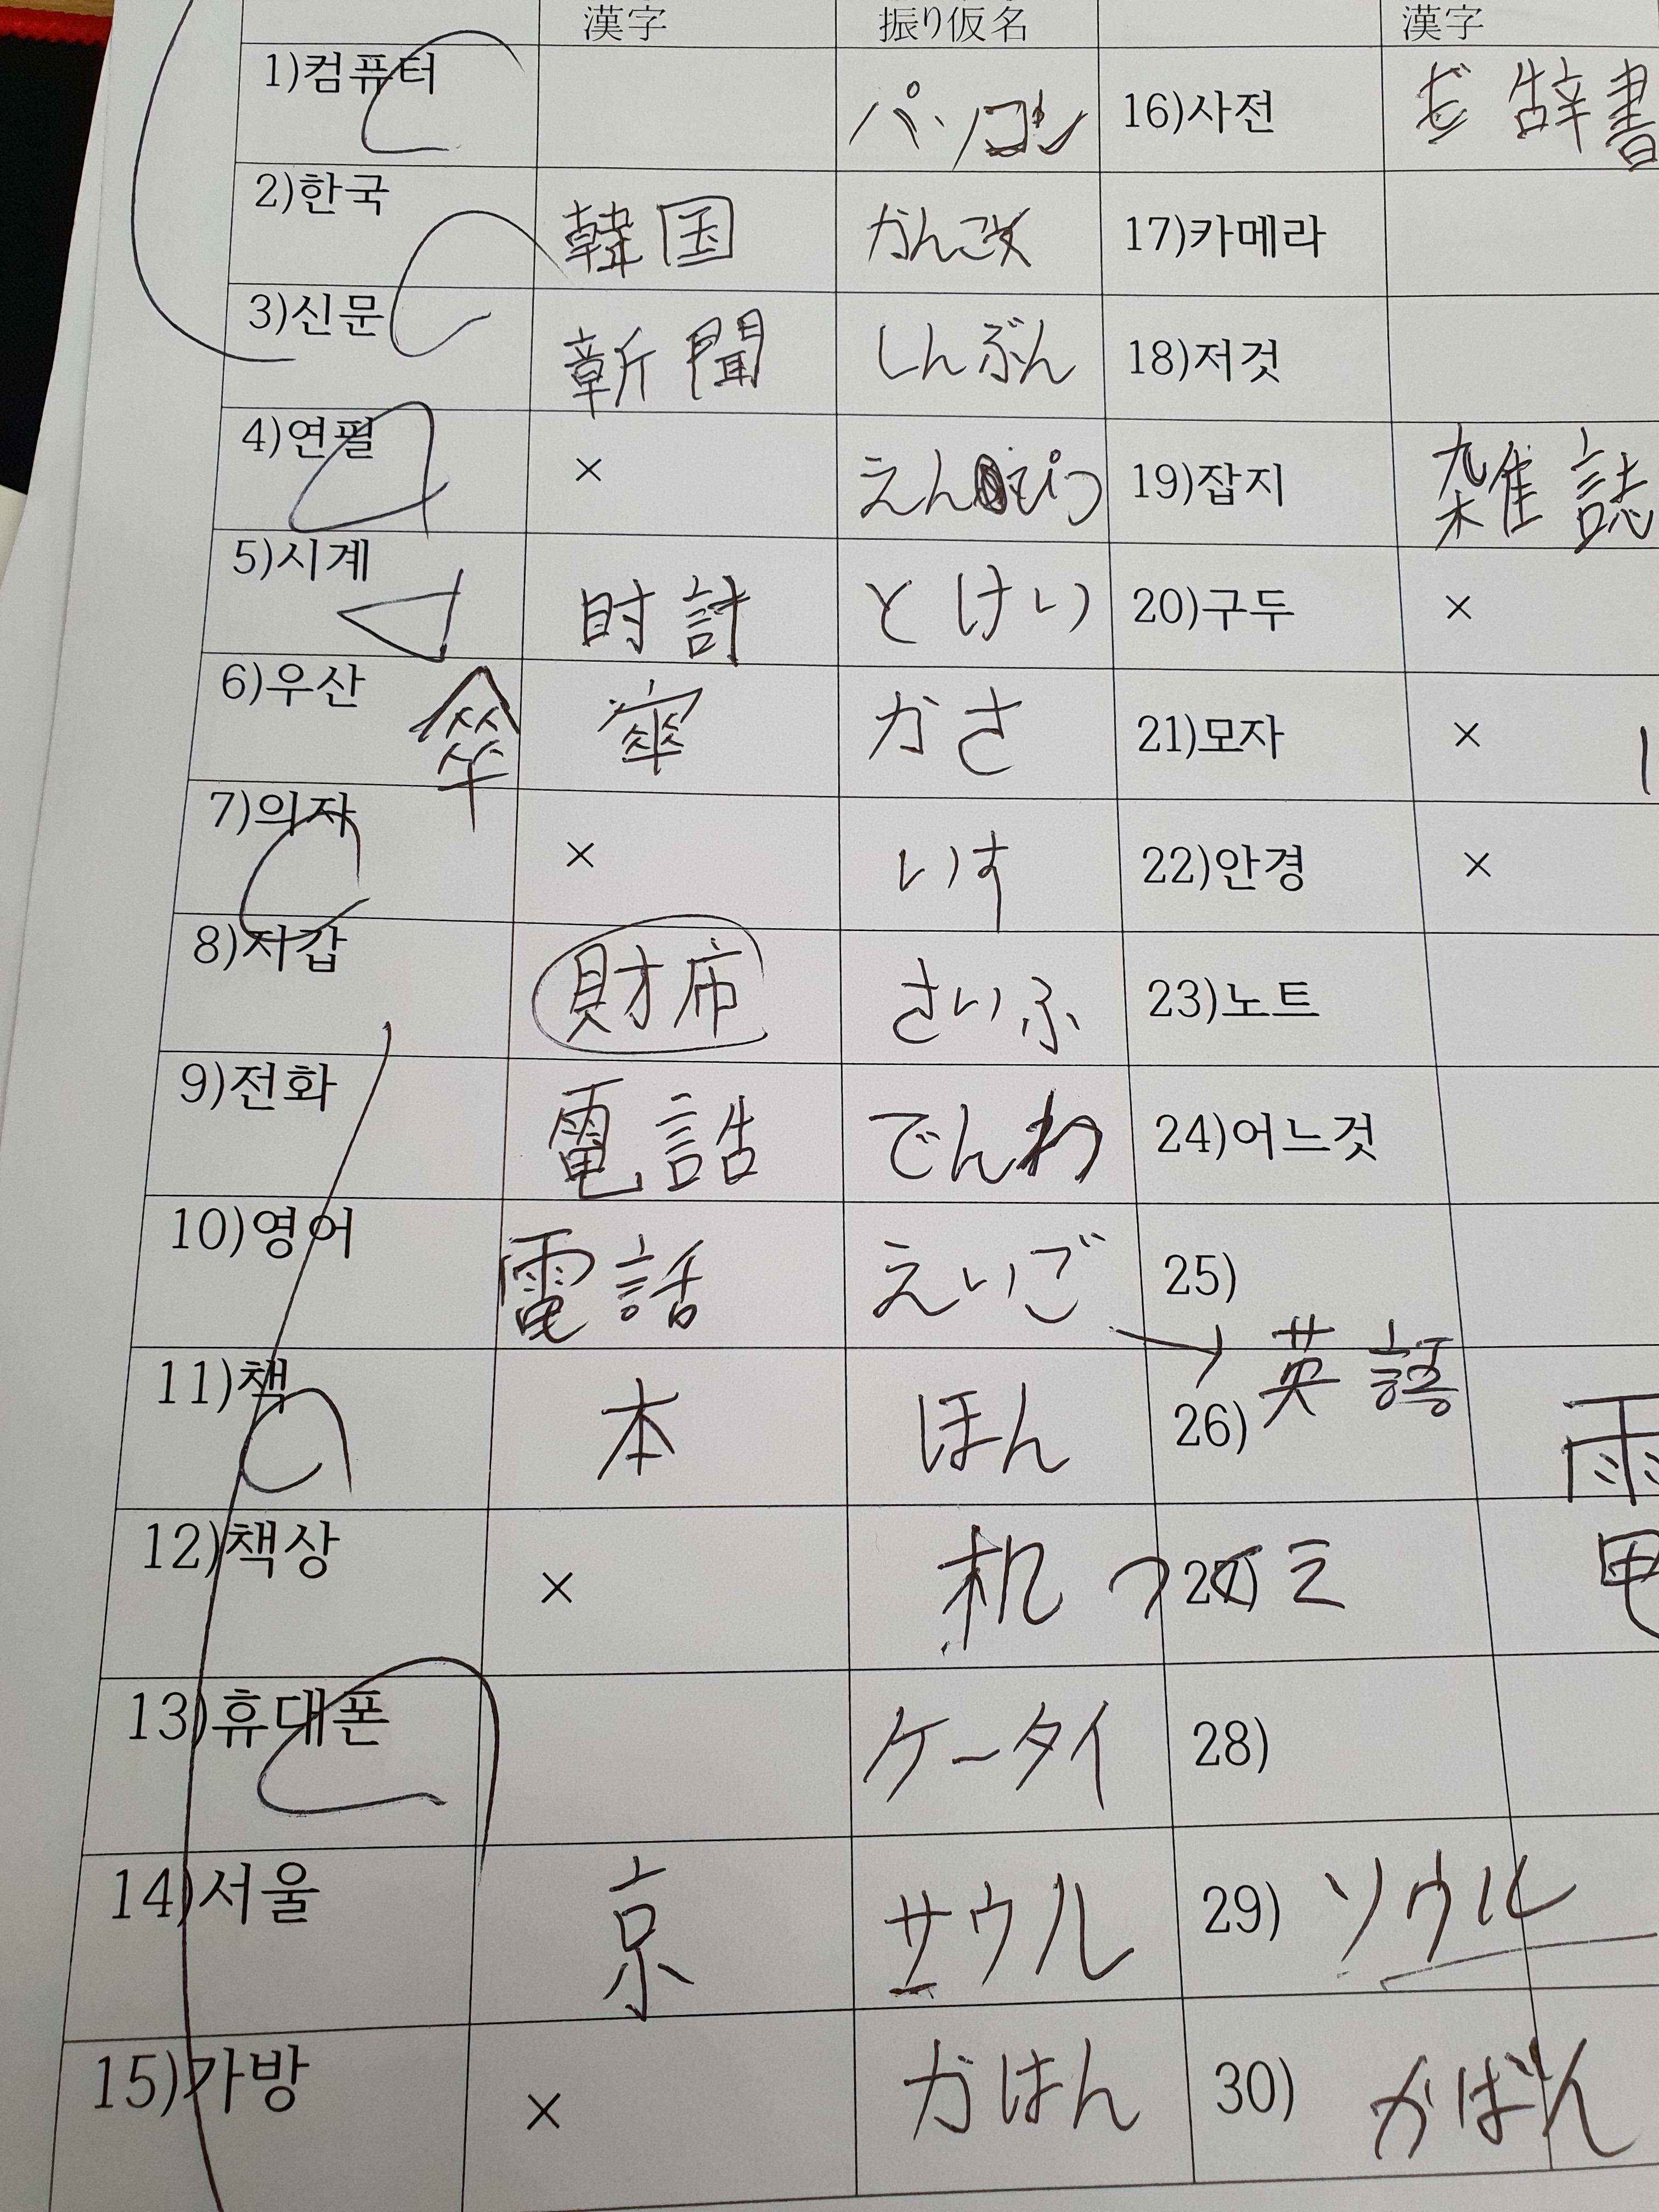 漢字 振り仮名 漢字
1)컴퓨터 パソコン 16)사전 辞書
2)한국 韓国 かんこく 17)카메라
3)신문 新聞 しんぶん 18)저것
4)연필 × えんぴつ 19)잡지 雑誌
5)시계 時計 とけい 20)구두 ×
6)우산 傘 傘 かさ 21)모자 ×
7)의자 × いす 22)안경 ×
8)지갑 財布 さいふ 23)노트
9)전화 電話 でんわ 24)어느것
10)영어 電話 えいご 25)
→ 英語
11)책 本 ほん 26) 雨
12)책상 × 机 つくえ 27)
13)휴대폰 ケータイ 28)
14)서울 京 サウル 29) ソウル
15)가방 × かはん 30) かばん